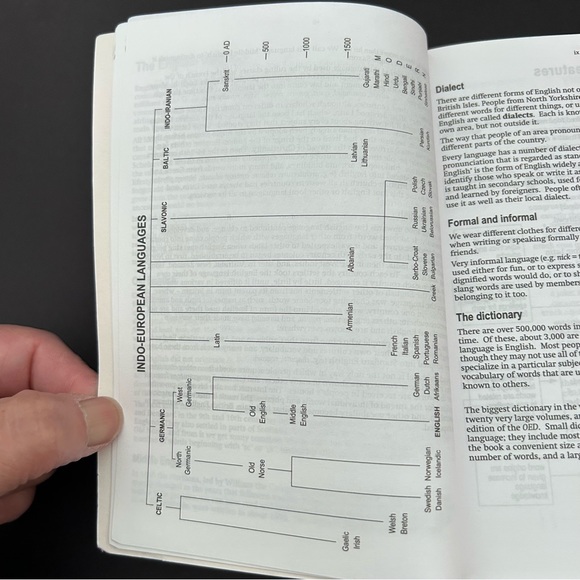 INDO-EUROPEAN LANGUAGES
CELTIC
GERMANIC
SLAVONIC
BALTIC
INDO-IRANIAN
North
Germanic
West
Germanic
Latin
Sanskrit
0 AD
Old
Norse
Old
English
500
Middle
English
1000
Gaelic
Irish
Armenian
Albanian
Latvian
Lithuanian
1500
Welsh
Breton
Swedish Norwegian
Danish Icelandic
German
Dutch
ENGLISH Afrikaans
French
Italian
Spanish
Portuguese
Romanian
Greek
Serbo-Croat
Slovene
Bulgarian
Russian
Ukrainian
Polish
Czech
Slovak
Persian
Gujarati
Marathi
Hindi
Urdu
Bengali
M
O
D
E
R
Dialect
There are different forms of English not o
British Isles. People from North Yorkshire
different words for different things, or u
English are called dialects. Each is know
own area, but not outside it.
The way that people of an area pronoun
different parts of the country.
Every language has a number of dialect
pronunciation that is regarded as stan
English' is the form of English widely a
identify those who speak or write it as
is taught in secondary schools, used f
and learned by foreigners. People of
use it as well as their local dialect.
Formal and informal
We wear different clothes for differe
when writing or speaking formally
friends.
Very informal language (e.g. nick =
used either for fun, or to express s
dignified words would do, or to sh
slang words are used by members
belonging to it too.
The dictionary
There are over 500,000 words in
time. Of these, about 3,000 are
language is English. Most peop
though they may not use all of
specialize in a particular subjec
vocabulary of words that are u
known to others.
The biggest dictionary in the
twenty very large volumes, a
edition of the OED. Small dic
language; they include most
the book a convenient size a
number of words, and a larg